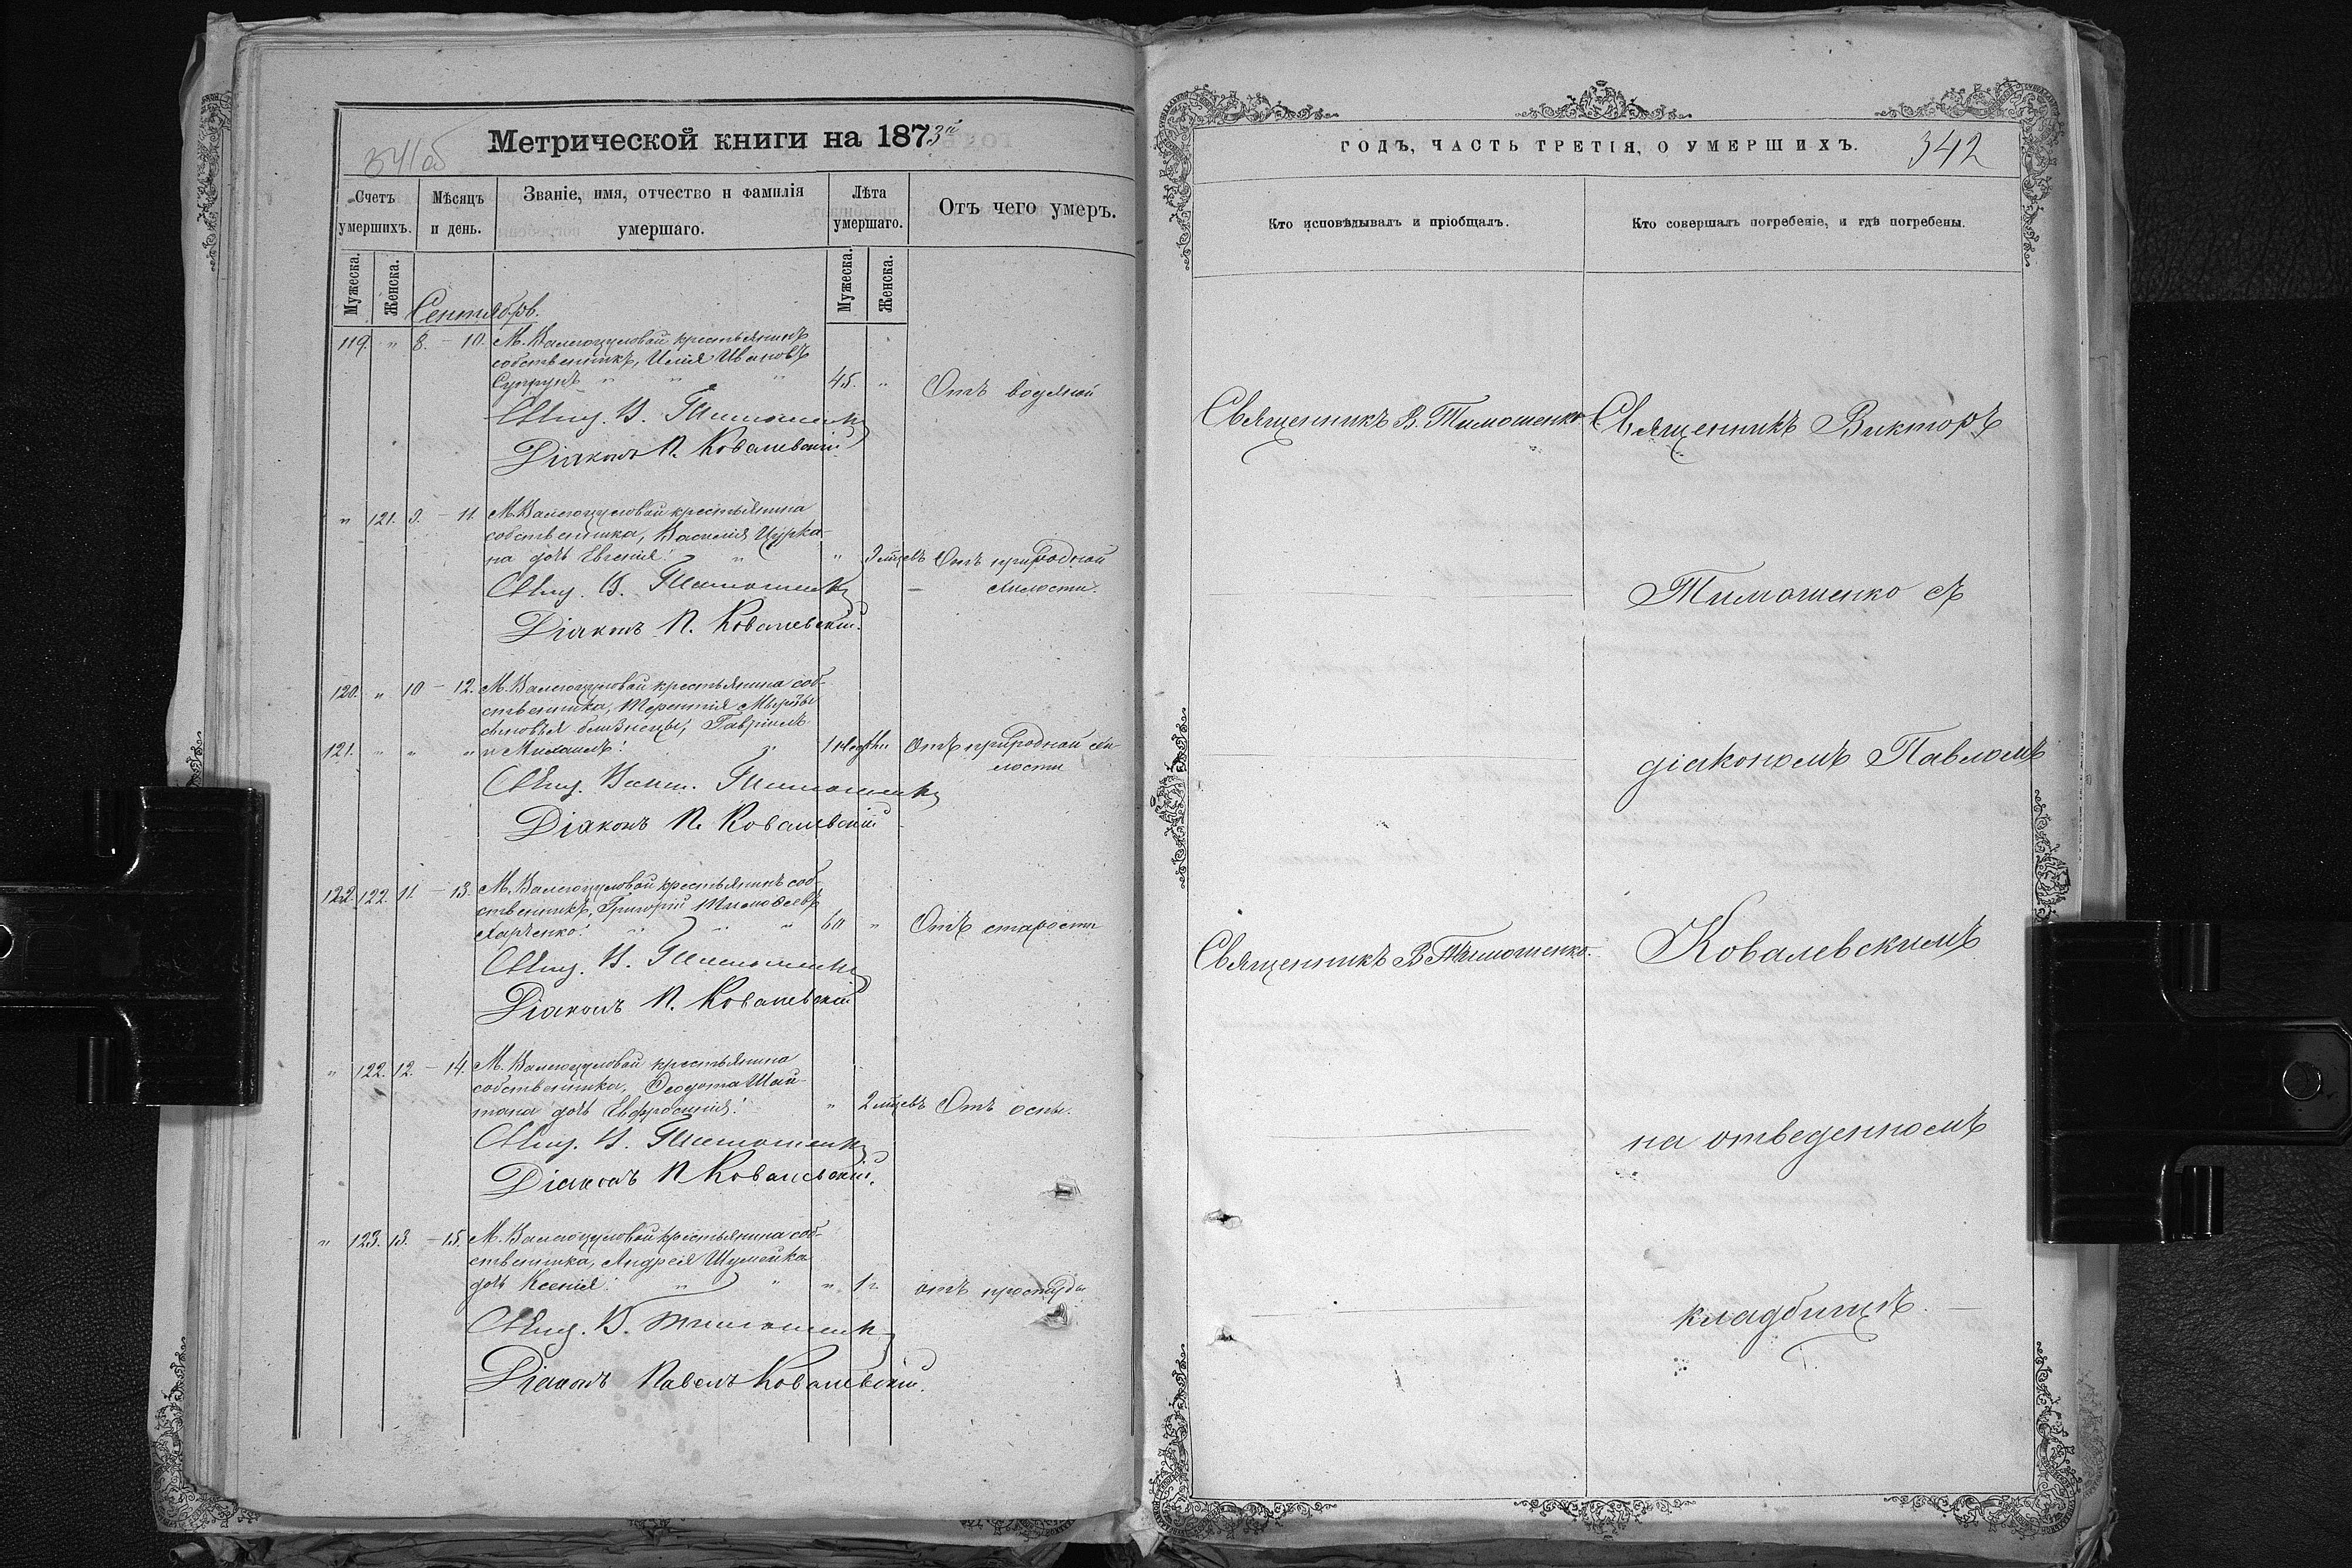 341об
Метрической книги на 1873й
Счетъ умершихъ.
Мѣсяцъ и день.
Званіе, имя, отчество и фамилія умершаго.
Лѣта умершаго.
Отъ чего умеръ.
Мужеска.
Женска.
Мужеска.
Женска.
Сентябрь.
119. " 8. – 10. М. Валегоцуловой крестьянинъ
собственникъ, Илія Ивановъ
Супрунъ " " " 45. " Отъ водяной
Свящ. В. Тимошенко
Діаконъ П. Ковалевскій
" 121. 9. – 11. М. Валегоцуловой крестьянина
собственника, Василія Цурка-
на дочь Евгенія. " " 3 мцевъ Отъ природной
слабости.
Свящ. В. Тимошенко
Діаконъ П. Ковалевскій.
120. " 10 – 12. М. Валегоцуловой крестьянина соб-
ственника, Терентія Мырзы
сыновья близнецы, Гавріилъ
121. " " " и Михаилъ. " 1 недѣли Отъ природной сла-
бости
Свящ. Викт. Тимошенко
Діаконъ П. Ковалевскій
122. 122. 11. – 13. М. Валегоцуловой крестьянинъ соб-
ственникъ, Григорій Тимофеевъ
Харченко. " " " 60 " Отъ старости
Свящ. В. Тимошенко
Діаконъ П. Ковалевскій
" 122. 12. – 14. М. Валегоцуловой крестьянина
собственника, Ѳеодота Шай-
тана дочь Евфросинія. " 2 мцевъ Отъ оспы.
Свящ. В. Тимошенко
Діаконъ П Ковалевскій.
" 123. 13. – 15. М. Валегоцуловой крестьянина соб-
ственника, Андрея Шумейка
дочь Ксенія. " " " 1 г. отъ простуды
Свящ. В. Тимошенко
Діаконъ Павелъ Ковалевскій.
ГОДЪ, ЧАСТЬ ТРЕТІЯ, О УМЕРШИХЪ.
342
Кто исповѣдывалъ и пріобщалъ.
Кто совершалъ погребеніе, и гдѣ погребены.
Священникъ В. Тимошенко
Священникъ Викторъ
Тимошенко съ
діакономъ Павломъ
Священникъ В Тимошенко.
Ковалевскимъ
на отведенномъ
кладбищѣ.